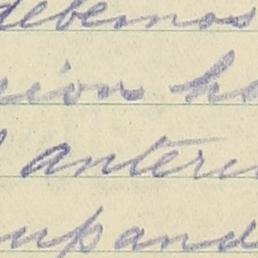 debemos
sion ha
anteri
upand